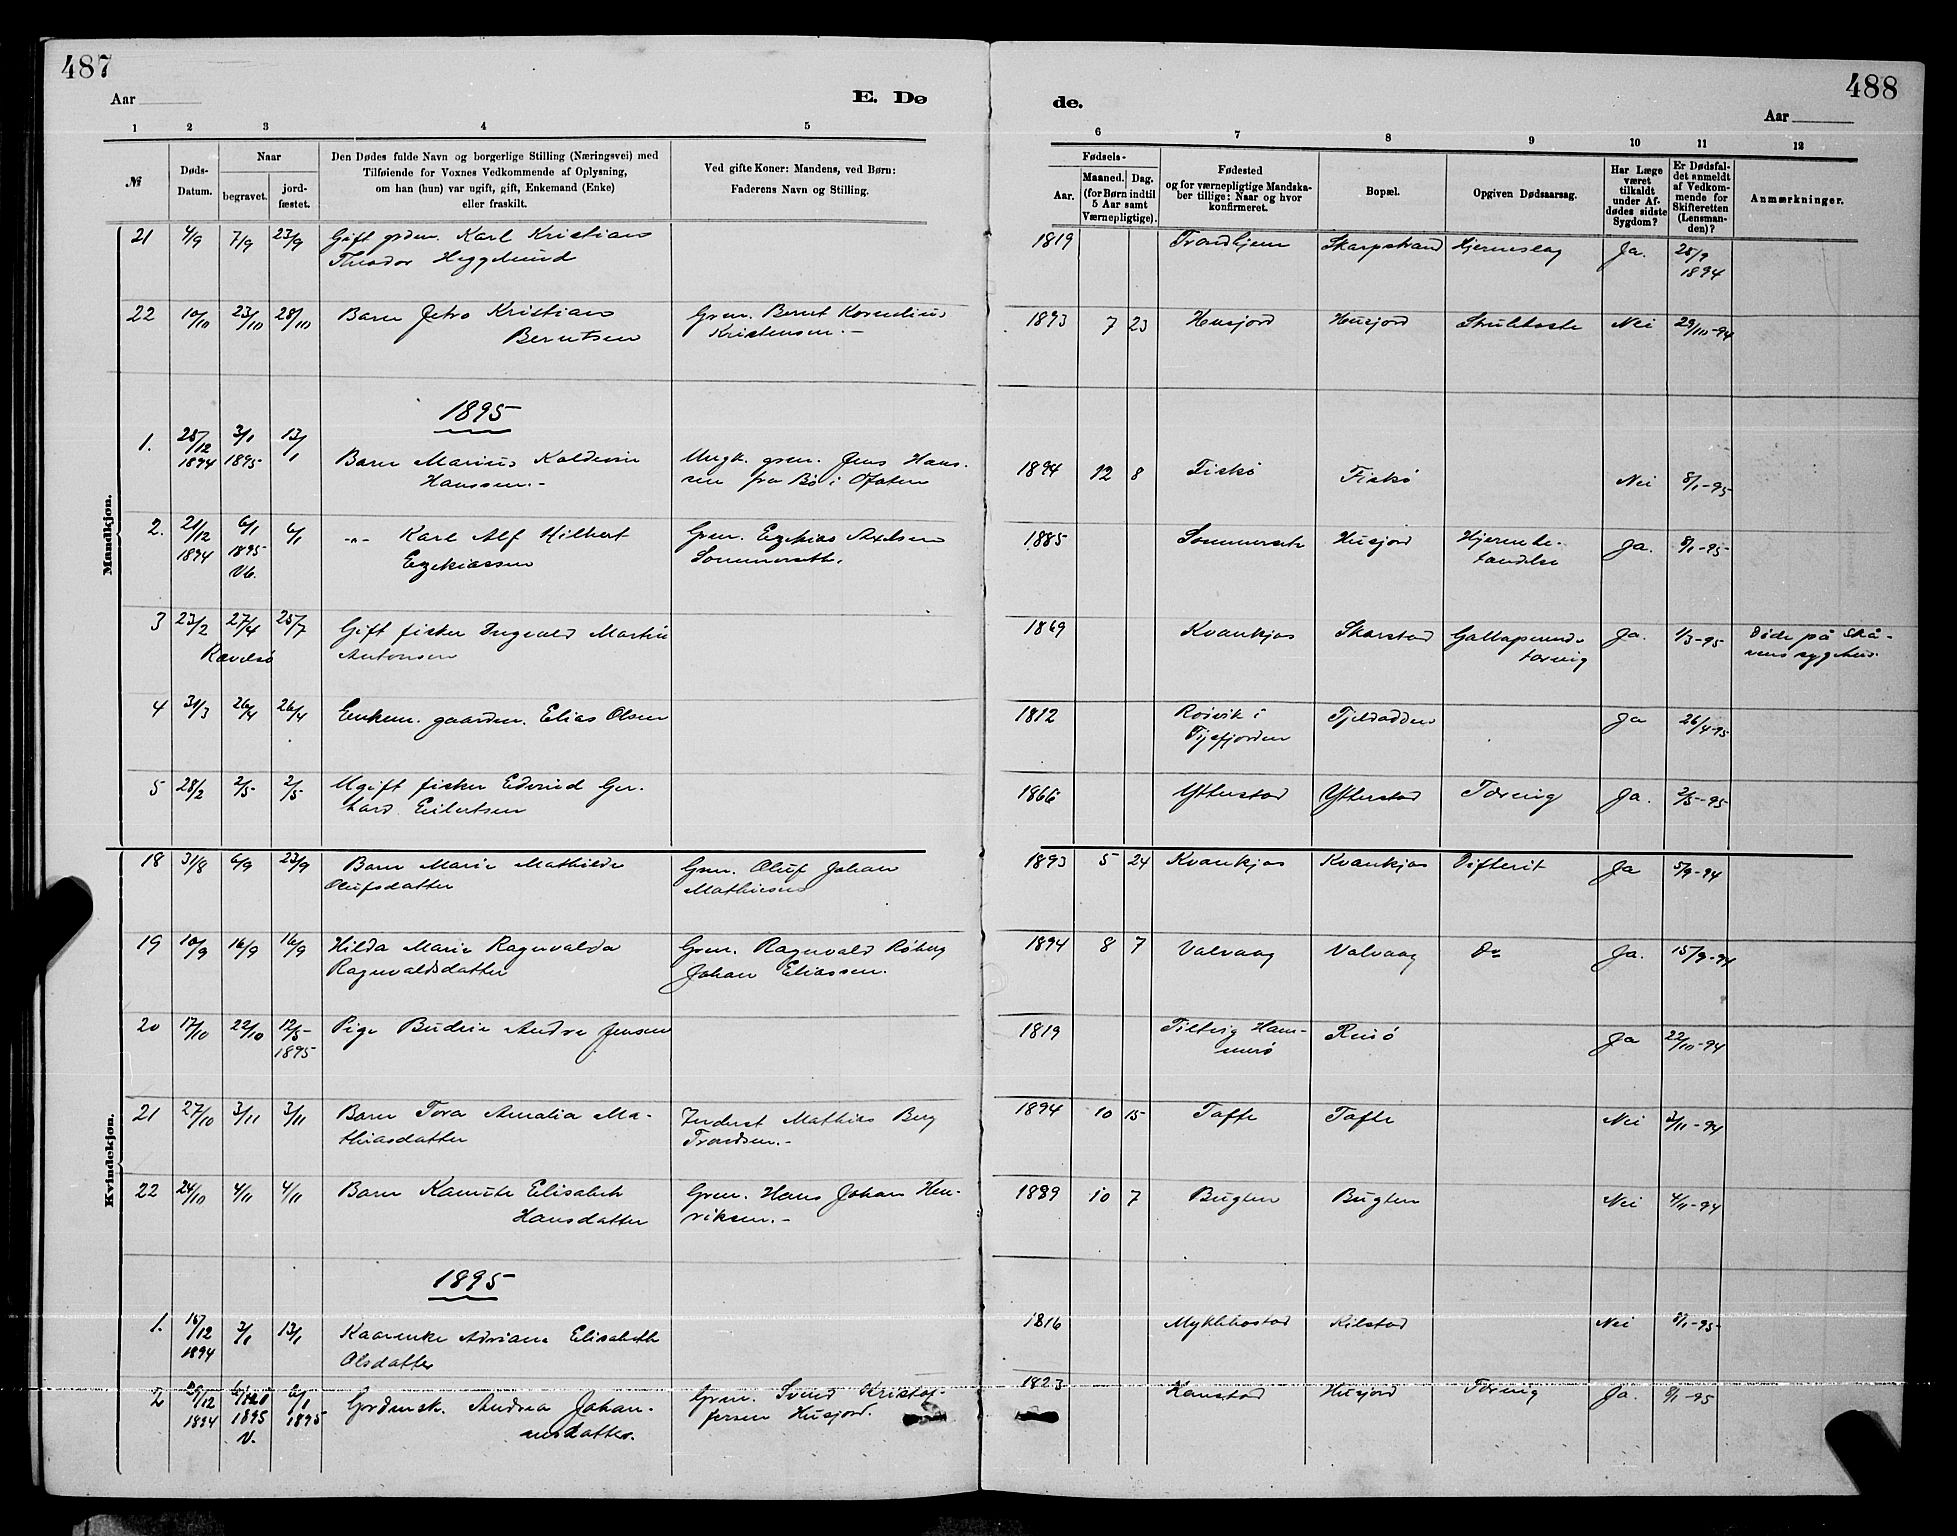 487
Aar
E. Dø
1 2 3 4 5
№
Døds-
Datum.
Naar
begravet.
jord-
fæstet.
Den Dødes fulde Navn og borgerlige Stilling (Næringsvei) med
Tilføiende for Voxnes Vedkommende af Oplysning,
om han (hun) var ugift, gift, Enkemand (Enke)
eller fraskilt.
Ved gifte Koner: Mandens, ved Børn:
Faderens Navn og Stilling.
Mandkjøn.
21 4/9 7/9 23/9 Gift grdm. Karl Kristian
Theodor Hegglund
22 10/10 23/10 28/10 Barn Jetro Kristian Grm. Bernt Kornelius
Berntsen Kristensen.-
1895
1. 28/12 3/1 13/1
1894 1895 Barn Marius Kaldevin Ungk. grm. Jens Hans-
Hanssen.- sen fra Bø i Ofoten
2. 21/12 6/1 6/1 -"- Karl Alf Hilbert Grm. Ezekias Axelsen
1894 1895 Ezekiassen Sommerseth.
3 23/2 27/4 25/7 Gift fisker Ingvald Martin
Antonsen
4 31/3 26/4 26/4 Enkem. gaardm. Elias Olsen
5 28/2 2/5 2/5 Ugift fisker Edvind Ger-
hard Eilertsen
Kvindekjøn.
18 31/8 6/9 23/9 Barn Marie Mathilde Grm. Oluf Johan
Olufsdatter Mathiesen
19 10/9 16/9 16/9 Hilda Marie Ragnvalda Grm. Ragnvald Røberg
Ragnvaldsdatter Johan Eliassen.
20 17/10 22/10 12/5- Pige Andrea Jensen
1895
21 27/10 3/11 3/11 Barn Tora Amalia Ma- Inderst Mathias Berg
thiasdatter Trondsen.-
22 24/10 4/11 4/11 Barn Elisabeth Grm. Hans Johan Hen-
Hansdatter riksen.-
1895
1. 15/12 3/1 13/1 Adriana Elisabeth
1894 Olsdatter
2 6/1 Andrea Johan- Grm. Svend Kristof-
1894 1895 1895 nesdatter. fersen Husjord.
V.
488
de.
Aar
6 7 8 9 10 11 12
Fødsels-
Aar.
Maaned. Dag.
(for Børn indtil
5 Aar samt
Værnepligtige).
Fødested
og for værnepligtige Mandska-
ber tillige: Naar og hvor
konfirmeret.
Bopæl.
Opgiven Dødsaarsag.
Har Læge
været
tilkaldt
under Af-
dødes sidste
Sygdom?
Er Dødsfal-
det anmeldt
af Vedkom-
mende for
Skifteretten
(Lensman-
den)?
Anmærkninger.
1819 Trondhjem Skarpstrand Hjerneslag Ja. 25/9
1894
1893 7 23 Husjord Husjord Strubhoste Nei 29/10-94
1894 12 8 Fiskø Fiskø Nei 8/1-95
1885 Sommerseth Husjord Hjernebe- Ja. 8/1-95
tændelse
1869 Kvankjos Skarstad Galloperende Ja. 1/3-95 Døde på
tæring sygehus.
1812 Røivik i Tjeldodden Ja 26/4-95
Tysfjorden
1866 Ytterstad Ytterstad Tæring Ja. 2/5-95
1893 5 24 Kvankjos Kvankjos Difterit Ja 5/9-94
1894 8 7 Valvaag Valvaag Do Ja. 15/9-94
1819 Tiltvig Ham- Rinø Ja 22/10-94
merø
1894 10 15 Tofte Tofte Nei 3/11-94
1889 10 7 Bugten Bugten Nei 4/11-94
1816 Myklebostad Kilstad Nei 3/1-95
1823 Kanstad Husjord Tæring Ja. 8/1-95